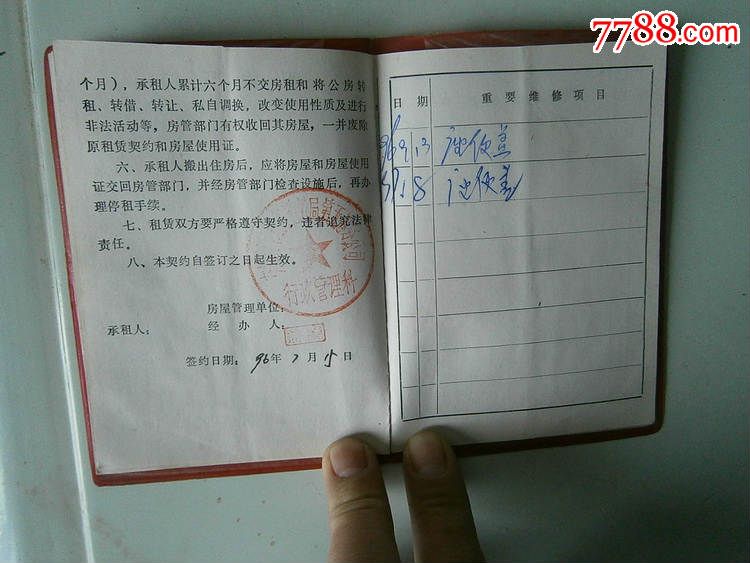 7788.com
个月），承租人累计六个月不交房租和将公房转
租、转借、转让、私自调换，改变使用性质及进行
非法活动等，房管部门有权收回其房屋，一并废除
原租赁契约和房屋使用证。
六、承租人搬出住房后，应将房屋和房屋使用
证交回房管部门，并经房管部门检查设施后，再办
理停租手续。
七、租赁双方要严格遵守契约，违者追究法律
责任。
八、本契约自签订之日起生效。
行政管理科
房屋管理单位：
承租人：
经 办 人：
签约日期：96年7月15日
日 期
重要维修项目